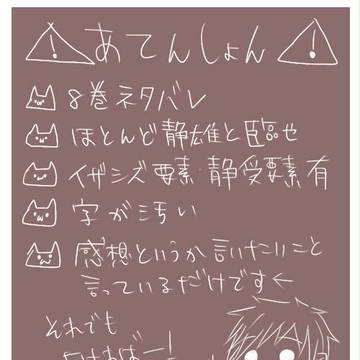 あてんしょん
8巻ネタバレ
ほとんど静雄と臨也
イザシズ要素・静受要素有
字が汚い
感想というか言いたいこと
言っているだけです←
それでも
よければー!